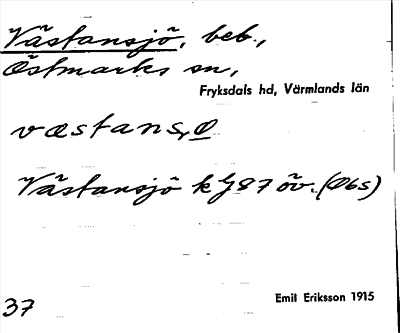 Västansjö, beb.,
Östmarks sn,
Fryksdals hd, Värmlands län
væstans,ø
Västansjö kG87 öv. (Obs)
Emil Eriksson 1915
37